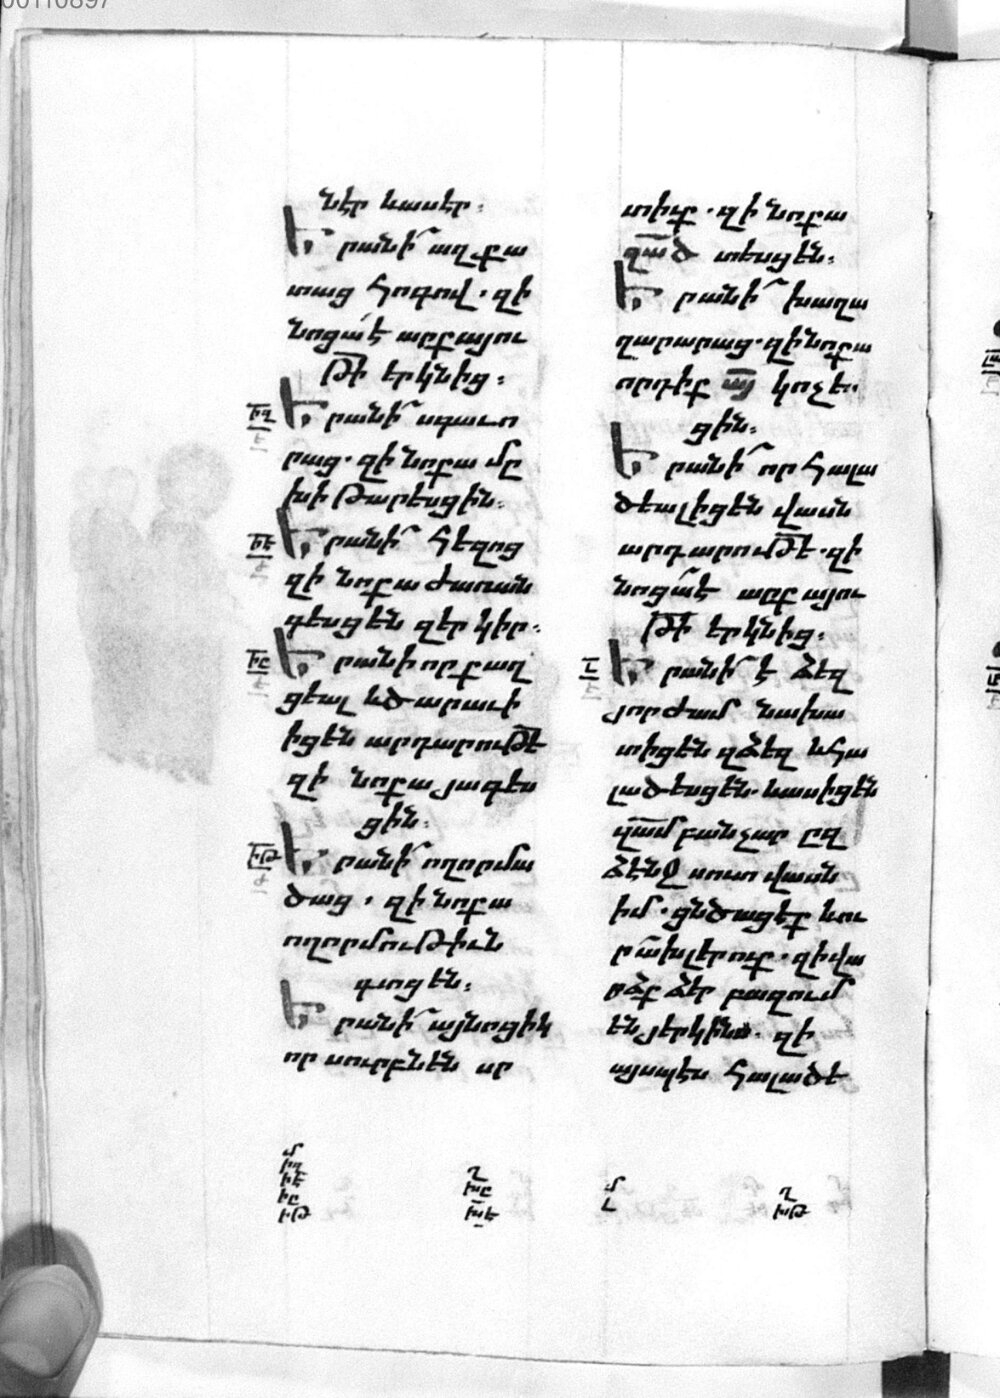 նէր և ասէր։
Երանի՜ աղքա
տաց հոգով· զի
նոցա՛ է արքայու
թի երկնից։
Երանի՜ սգաւո
րաց· զի նոքա մը
խիթարեսցին։
Երանի՜ հեզոց
զի նոքա ժառան
գեսցեն զերկիր։
Երանի որ քաղ
ցեալ և ծարաւի
իցեն արդարութե
զի նոքա յագես
ցին։
Երանի՜ ողորմա
ծաց· զի նոքա
ողորմութիւն
գտցեն։
Երանի՜ այնոցիկ
որ սուրբ են սր
տիւք· զի նոքա
զած տեսցեն։
Երանի՜ խաղա
ղարարաց· զի նոքա
որդիք այ կոչես
ցին։
Երանի՜ որ հալա
ծեալ իցեն վասն
արդարութե· զի
նոցա՛ է արքայու
թի երկնից։
Երանի՜ է ձեզ
յորժամ նախա
տիցեն զձեզ և հա
լածեսցեն· և ասիցեն
զամ բան չար ըզ
ձէնջ սուտ վասն
իմ· ցնծացէք և ու
րախ լերուք· զի վա
րձք ձեր բազում
են յերկինս· զի
այսպէս հալածե
իզ
իէ
իը
իթ
լ
մ
իզ
իէ
իը
իթ
ղ
խը
խե
մ
լ
ղ
խթ